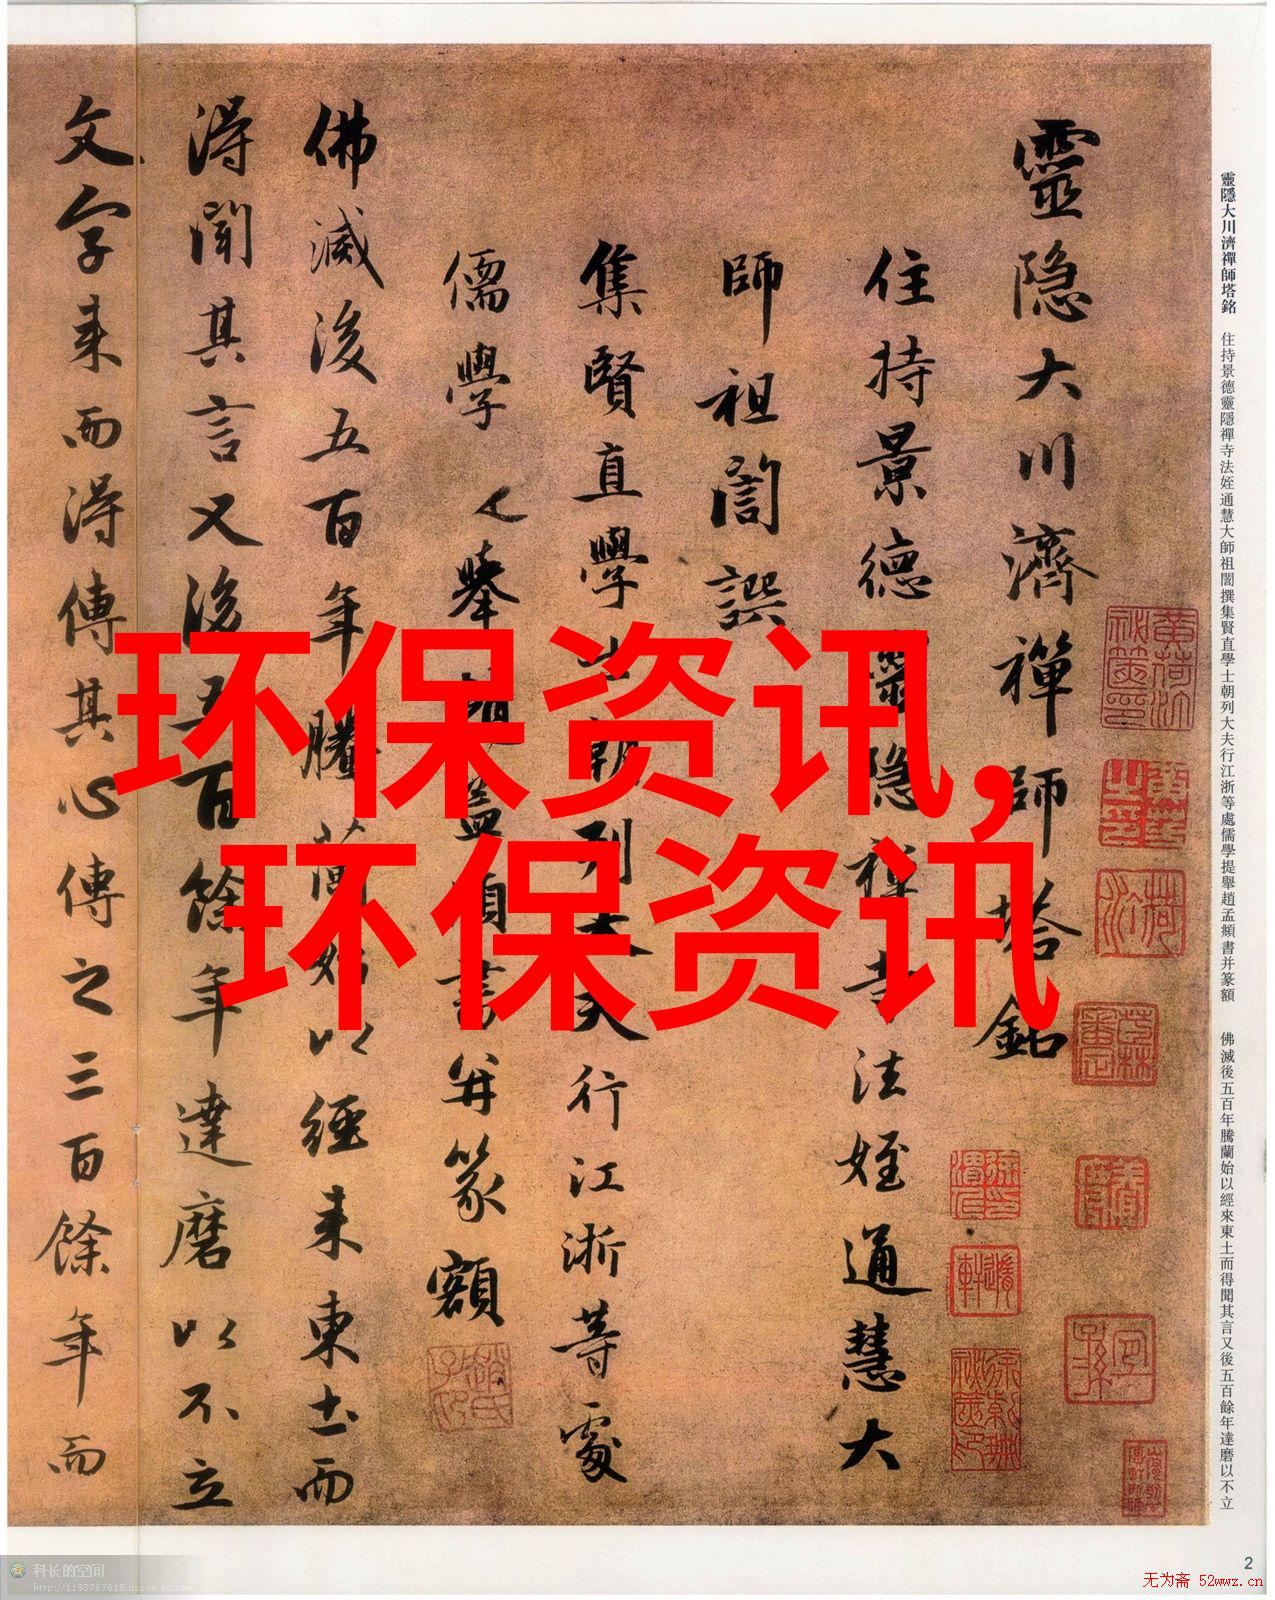 靈隐大川濟禪師塔銘
住持景德靈隐禪寺法姪通慧大
師祖誾譔
集賢直學士朝列大夫行江浙等處
儒學提舉趙孟頫書并篆額
佛滅後五百年騰蘭始以經来東土而
得聞其言又後五百餘年達磨以不立
文字来而得傳其心傳之三百餘年而
靈隱大川濟禪師塔銘 住持景德靈隱禪寺法姪通慧大師祖誾撰集賢直學士朝列大夫行江浙等處儒學提舉趙孟頫書并篆額 佛滅後五百年騰蘭始以經來東土而得聞其言又後五百餘年達磨以不立
环保资讯,
环保资讯
2
科长的空间
http://1193767618.qzone.qq.com
无为斋 52wwz.cn